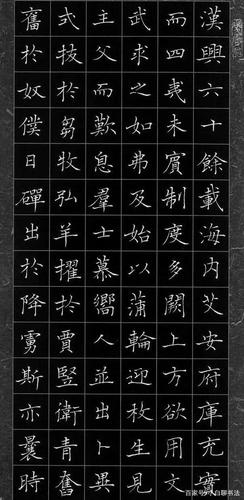 漢興六十餘載海內艾安府庫充實
而四夷未賓制度多闕上方欲用文
武求之如弗及始以蒲輪迎枚生見
主父而歎息羣士慕嚮人並出卜異
式拔於芻牧弘羊擢於賈豎衛青奮
奮於奴僕日磾出於降虜斯亦曩時
百家号/小白聊书法